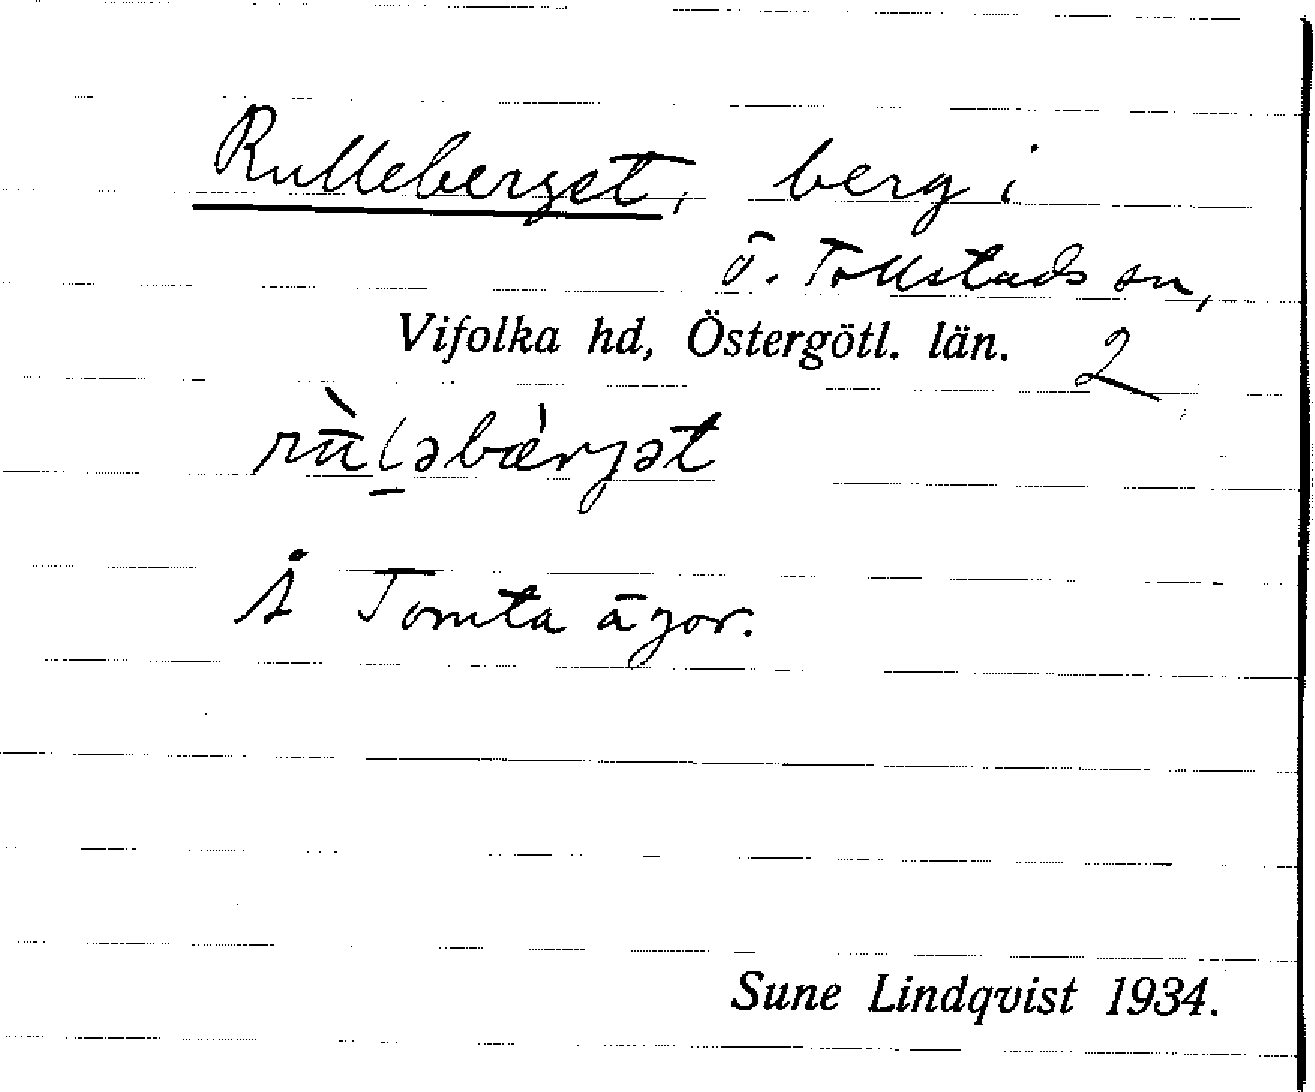 Rulleberget, berg i
Ö. Tollstads sn,
Vifolka hd, Östergötl. län. 2
Å Tomta ägor.
Sune Lindqvist 1934.